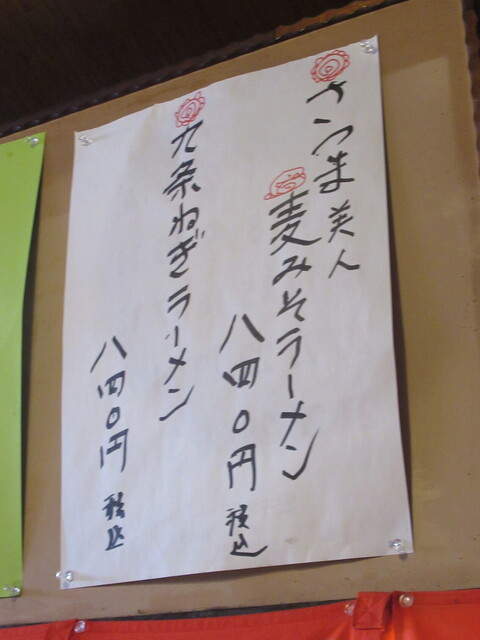 さつま美人
麦みそラーメン
八四〇円 税込
九条ねぎラーメン
八四〇円 税込